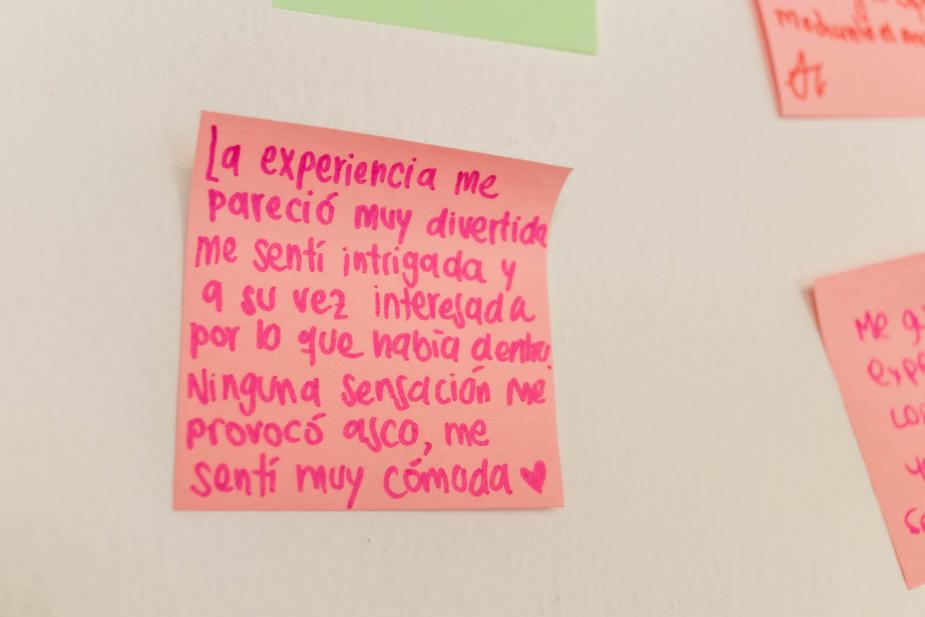 La experiencia me
pareció muy divertida
me sentí intrigada y
a su vez interesada
por lo que había dentro.
Ninguna sensación me
provocó asco, me
sentí muy cómoda ♥
mediante el
Me